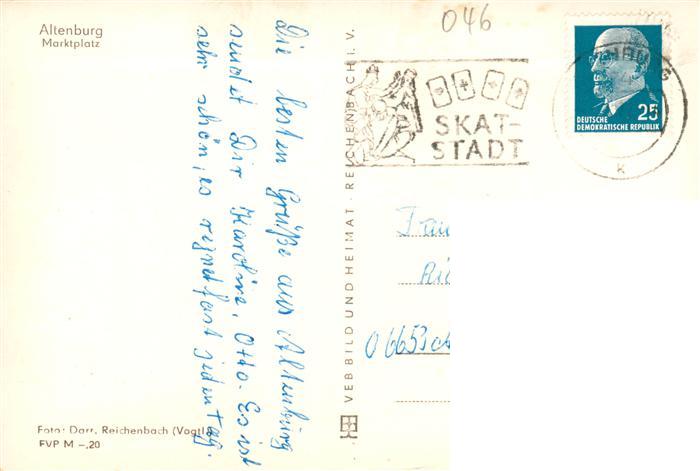 Altenburg
Marktplatz
Die besten Grüße aus Altenburg
sendet Dir Karoline, Otto. Es ist
sehr schön, es regnet fast jeden Tag.
Foto: Darr, Reichenbach (Vogtl.)
FVP M –,20
VEB BILD UND HEIMAT · REICHENBACH I. V.
046
SKAT-
STADT
25
DEUTSCHE
DEMOKRATISCHE REPUBLIK
k